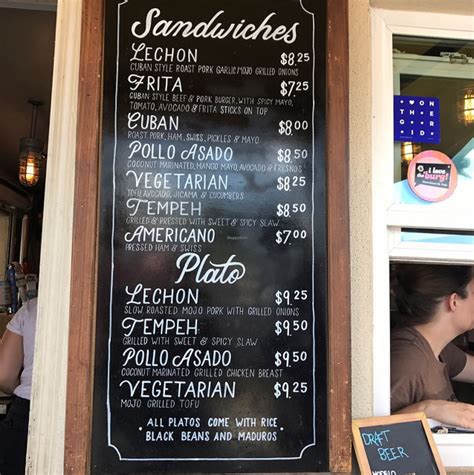 Sandwiches
LECHON $8.25
CUBAN STYLE ROAST PORK GARLIC MOJO GRILLED ONIONS
FRITA $7.25
CUBAN STYLE BEEF & PORK BURGER, WITH SPICY MAYO,
TOMATO, AVOCADO & FRITA STICKS ON TOP
CUBAN $8.00
ROAST PORK, HAM, SWISS, PICKLES & MAYO
POLLO ASADO $8.50
COCONUT MARINATED, MANGO MAYO, AVOCADO & FRESNOS
VEGETARIAN $8.25
TOFU, AVOCADO, JICAMA & CUCUMBERS
TEMPEH $8.50
GRILLED & PRESSED WITH SWEET & SPICY SLAW
AMERICANO $7.00
PRESSED HAM & SWISS
Plato
LECHON $9.25
SLOW ROASTED MOJO PORK WITH GRILLED ONIONS
TEMPEH $9.50
GRILLED WITH SWEET & SPICY SLAW
POLLO ASADO $9.50
COCONUT MARINATED GRILLED CHICKEN BREAST
VEGETARIAN $9.25
MOJO GRILLED TOFU
ALL PLATOS COME WITH RICE
BLACK BEANS AND MADUROS
ON
THE
GRID
i love
the burg!
DRAFT
BEER